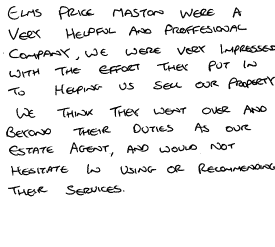 ELMS PRICE MASTON WERE A
VERY HELPFUL AND PROFFESIONAL
COMPANY, WE WERE VERY IMPRESSED
WITH THE EFFORT THEY PUT IN
TO HELPING US SELL OUR PROPERTY
WE THINK THEY WENT OVER AND
BEYOND THEIR DUTIES AS OUR
ESTATE AGENT, AND WOULD NOT
HESITATE IN USING OR RECOMMENDING
THEIR SERVICES.